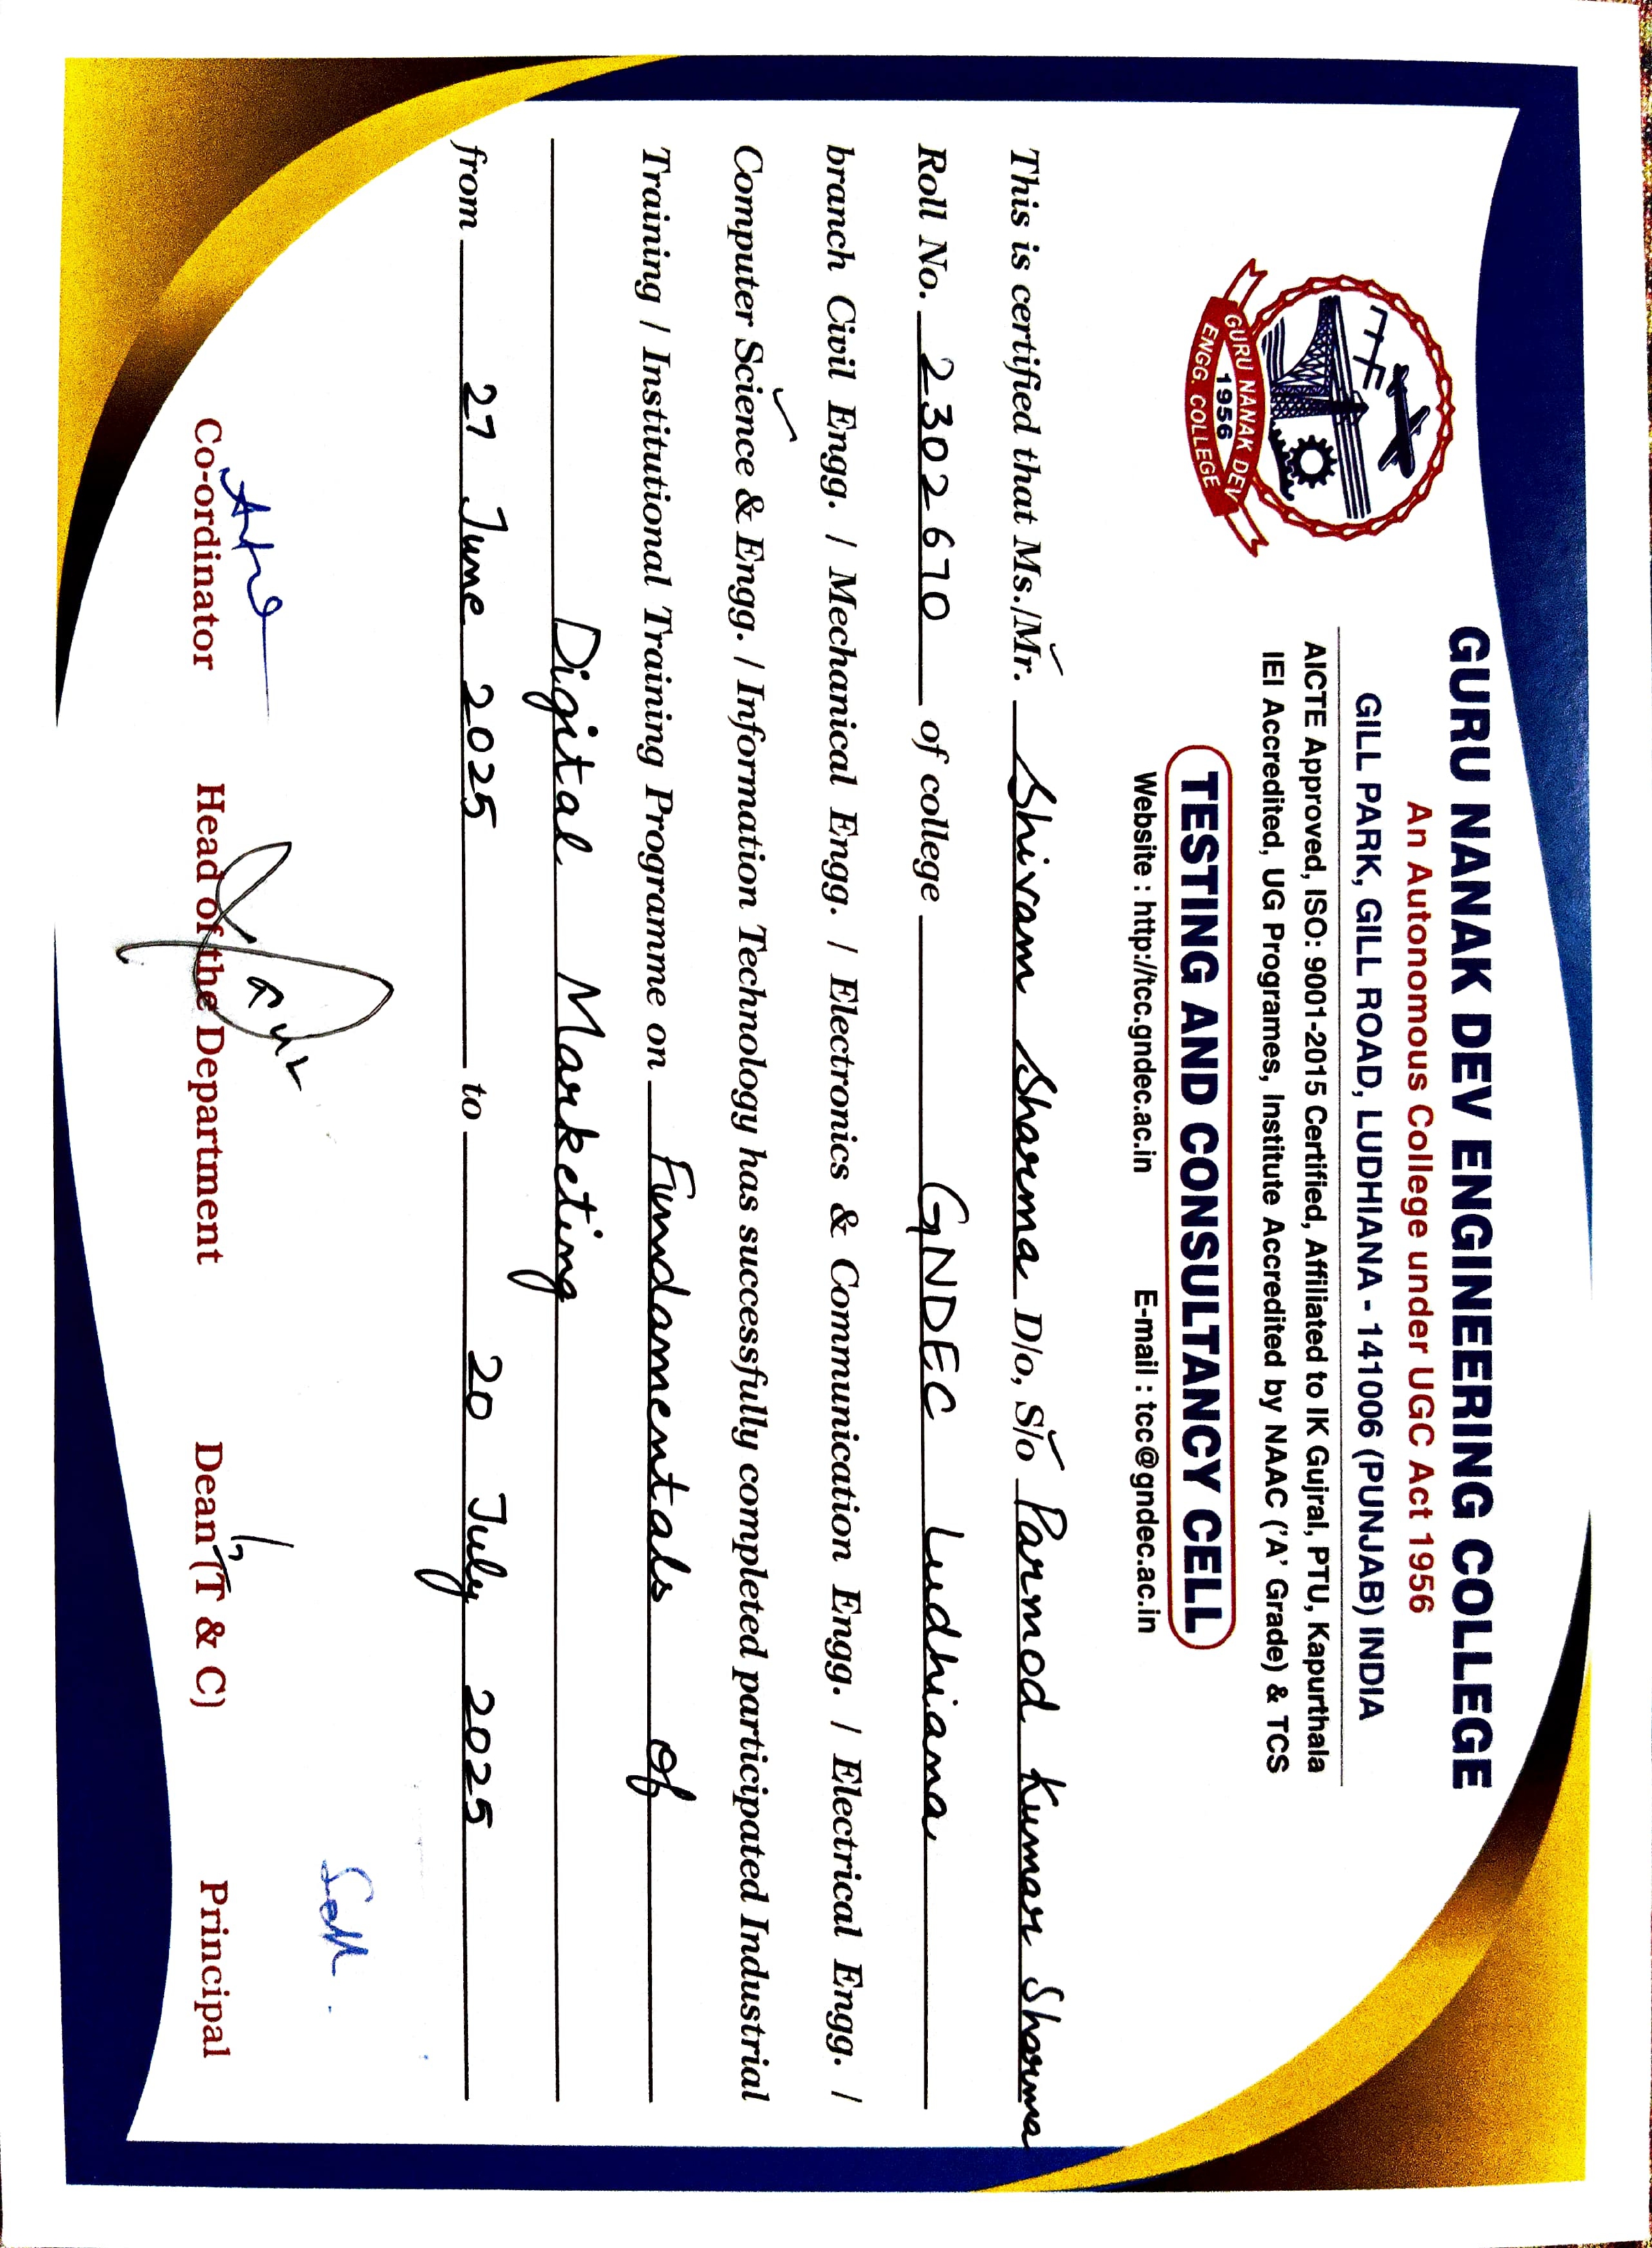 GURU NANAK DEV ENGINEERING COLLEGE
An Autonomous College under UGC Act 1956
GILL PARK, GILL ROAD, LUDHIANA - 141006 (PUNJAB) INDIA
AICTE Approved, ISO: 9001-2015 Certified, Affiliated to IK Gujral, PTU, Kapurthala
IEI Accredited, UG Programes, Institute Accredited by NAAC ('A' Grade) & TCS
GURU NANAK DEV
1956
ENGG. COLLEGE
TESTING AND CONSULTANCY CELL
Website : http://tcc.gndec.ac.in E-mail : tcc@gndec.ac.in
This is certified that Ms./Mr. Shivam Sharma D/o, S/o Parmod Kumar Sharma
Roll No. 2302670 of college GNDEC Ludhiana
branch Civil Engg. / Mechanical Engg. / Electronics & Communication Engg. / Electrical Engg. /
Computer Science & Engg. / Information Technology has successfully completed participated Industrial
Training / Institutional Training Programme on Fundamentals of
Digital Marketing
from 27 June 2025 to 20 July 2025
Co-ordinator Head of the Department Dean (T & C) Principal